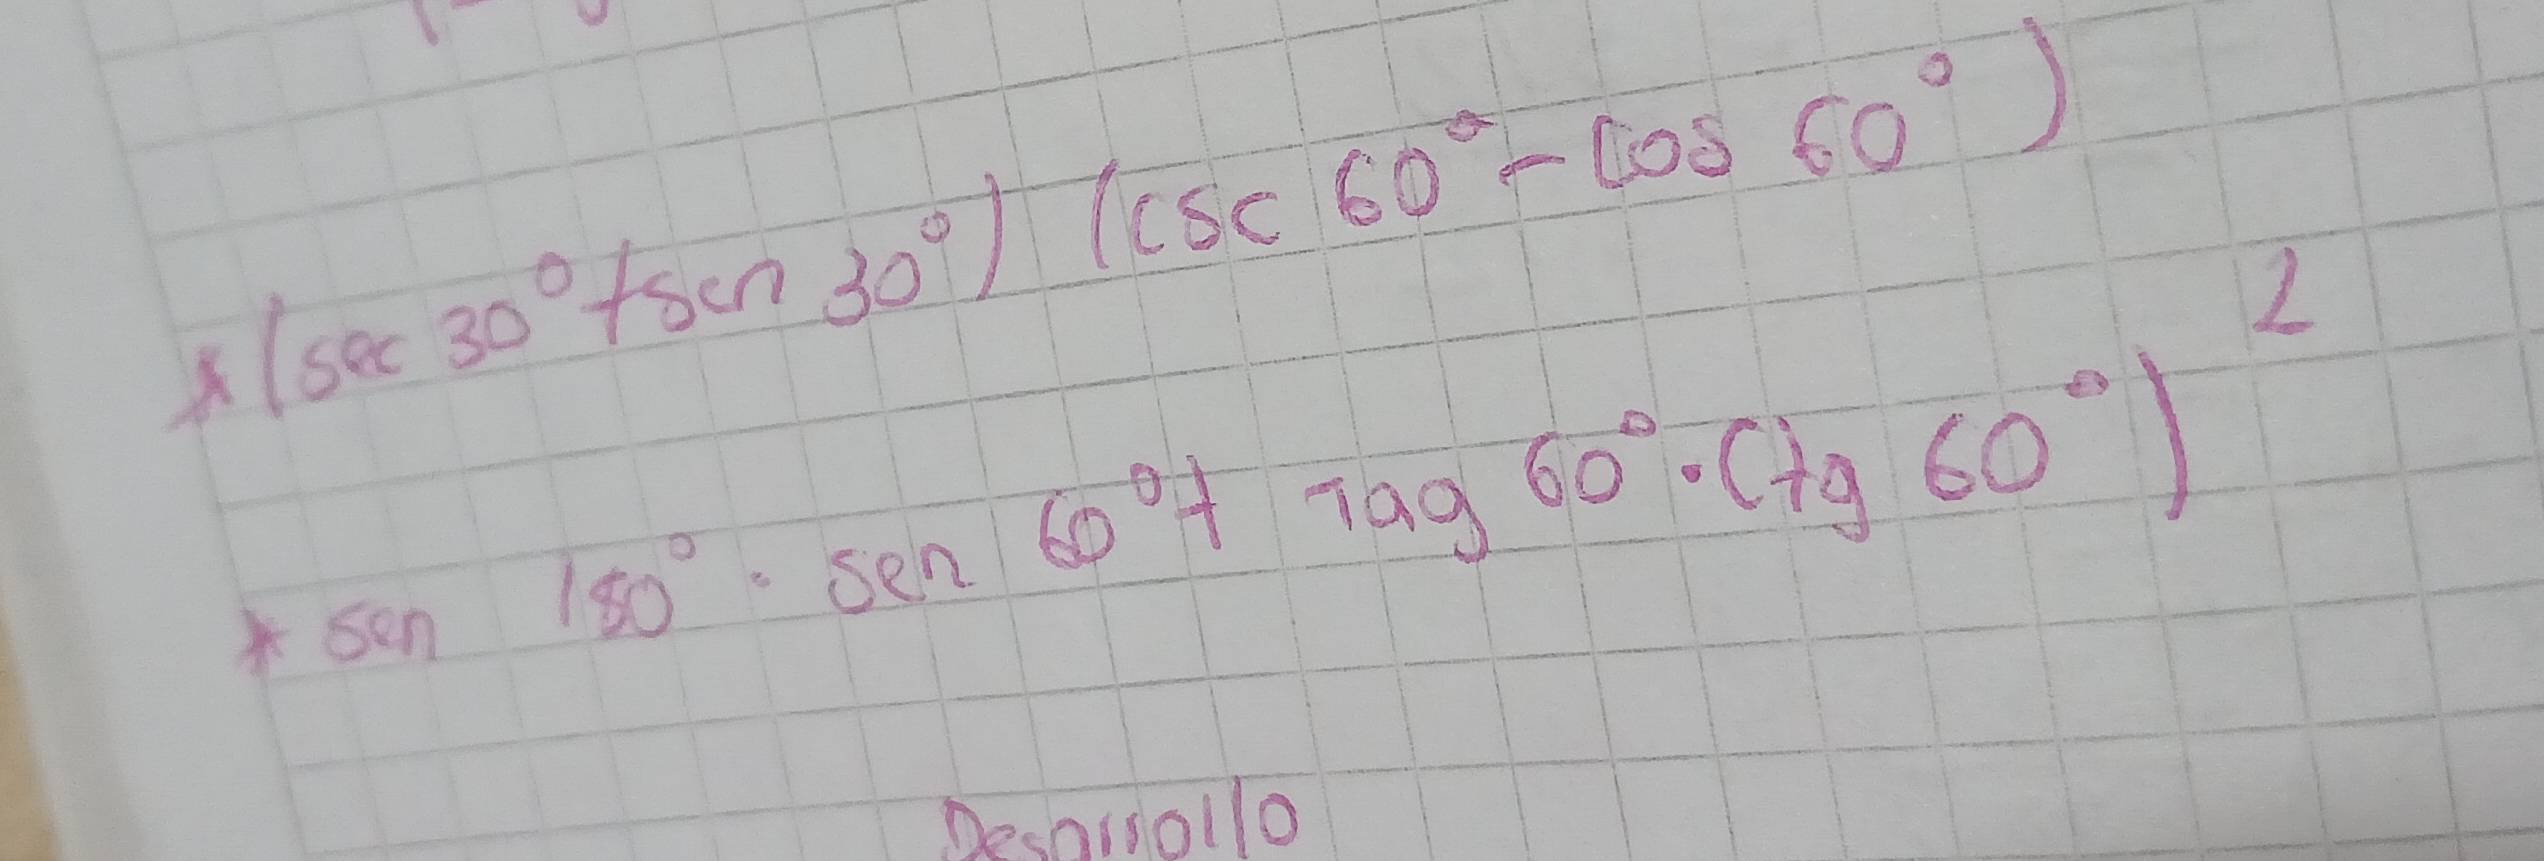 * (sec 30° + sen 30°) (csc 60° - cos 60°)
* sen 180° · sen 60° + Tag 60° · Ctg 60°)²
Desarrollo